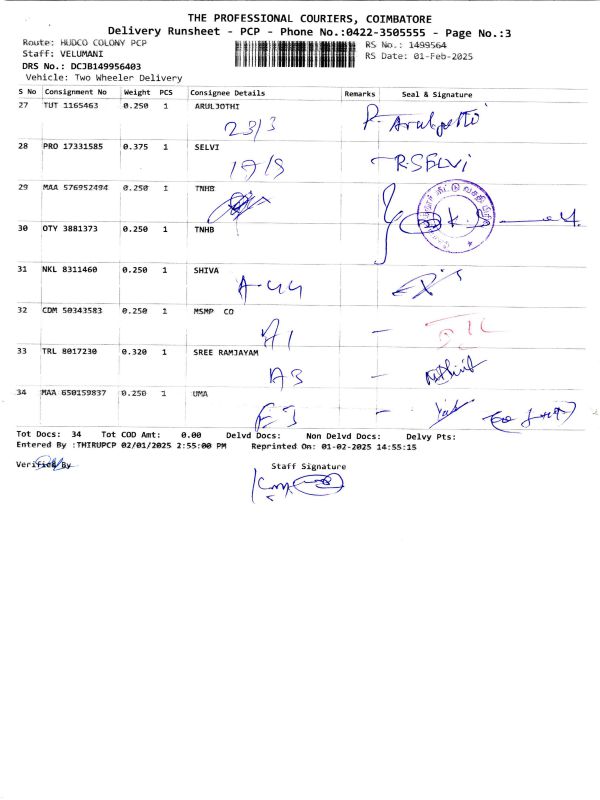 THE PROFESSIONAL COURIERS, COIMBATORE
Delivery Runsheet - PCP - Phone No.:0422-3505555 - Page No.:3
Route: HUDCO COLONY PCP RS No.: 1499564
Staff: VELUMANI RS Date: 01-Feb-2025
DRS No.: DCJB149956403
Vehicle: Two Wheeler Delivery
S No Consignment No Weight PCS Consignee Details Remarks Seal & Signature
27 TUT 1165463 0.250 1 ARULJOTHI
23/3
28 PRO 17331585 0.375 1 SELVI
R.SELVI
29 MAA 576952494 0.250 1 TNHB
30 OTY 3881373 0.250 1 TNHB
31 NKL 8311460 0.250 1 SHIVA
A-44
32 CDM 50343583 0.250 1 MSMP CO
A1
33 TRL 8017230 0.320 1 SREE RAMJAYAM
A3
34 MAA 650159837 0.250 1 UMA
E3
Tot Docs: 34 Tot COD Amt: 0.00 Delvd Docs: Non Delvd Docs: Delvy Pts:
Entered By :THIRUPCP 02/01/2025 2:55:00 PM Reprinted On: 01-02-2025 14:55:15
Verified By Staff Signature